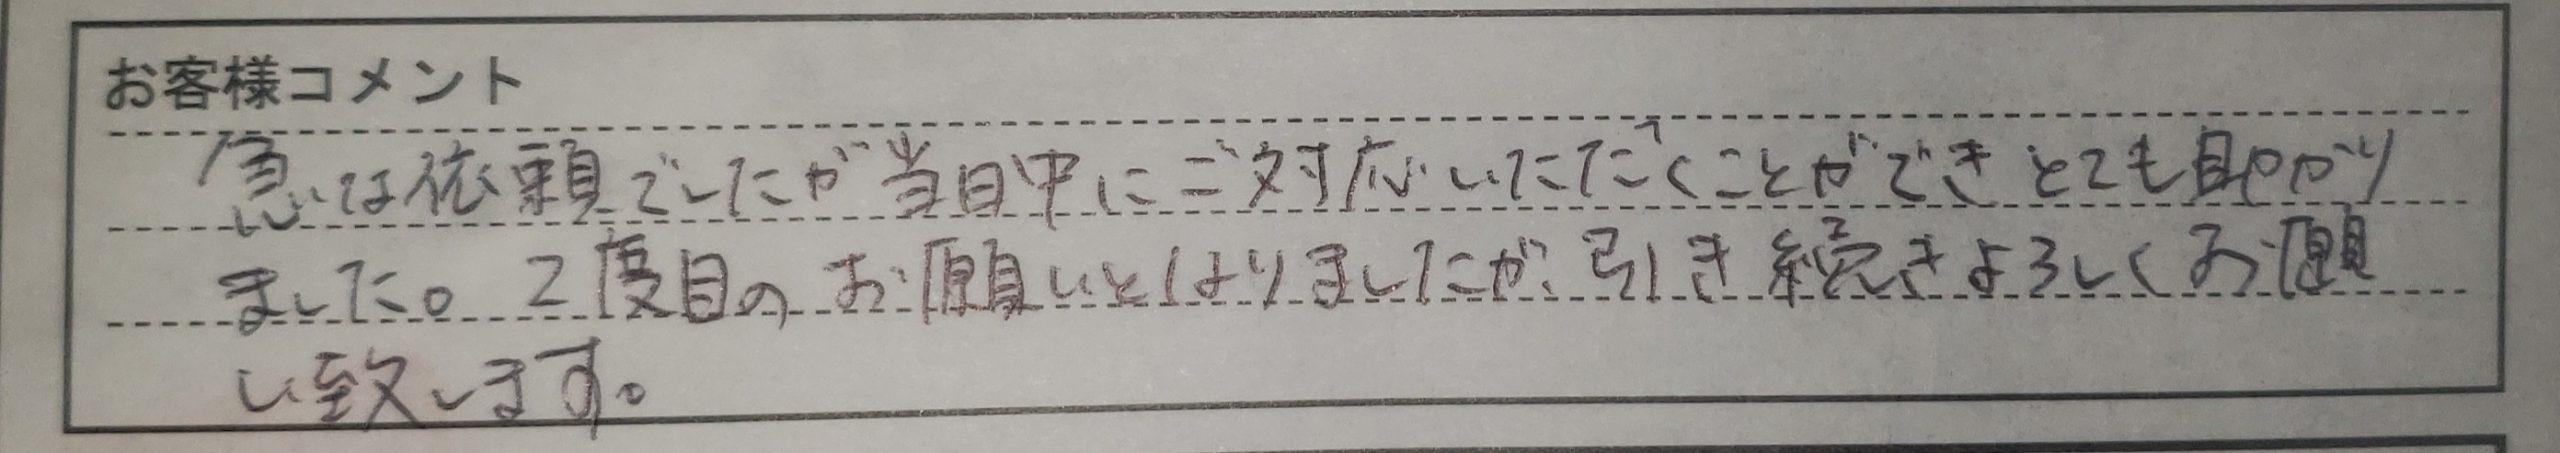 お客様コメント
急な依頼でしたが当日中にご対応いただくことができとても助かり
ました。2度目のお願いとはなりましたが、引き続きよろしくお願
い致します。